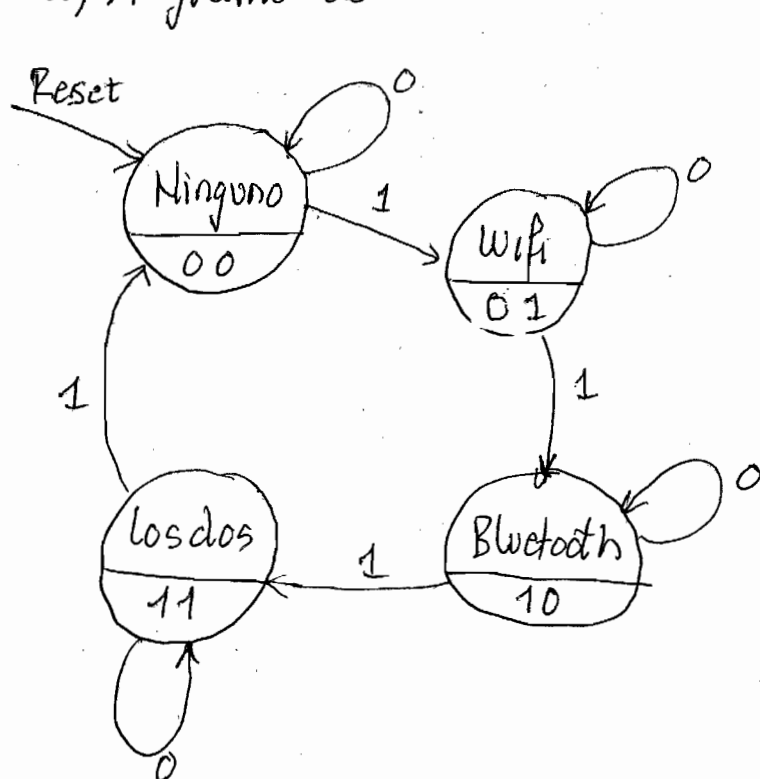 Reset
0
Ninguno
00
1
0
Wifi
01
1
1
0
Bluetooth
10
1
los dos
11
0